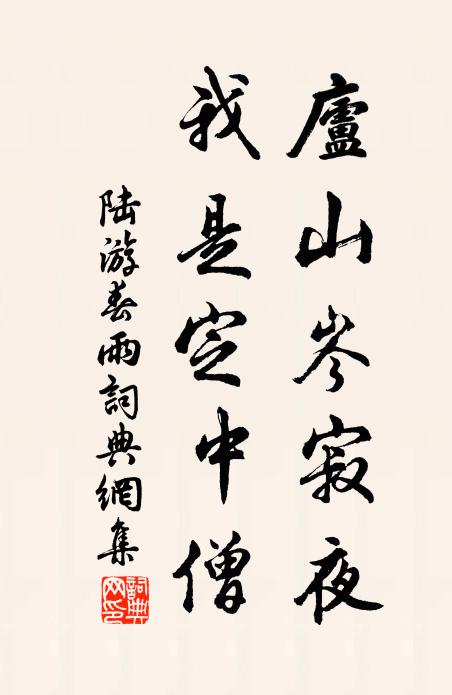 廬山岑寂夜
我是定中僧
陸游春雨詞典網集
詞典網印